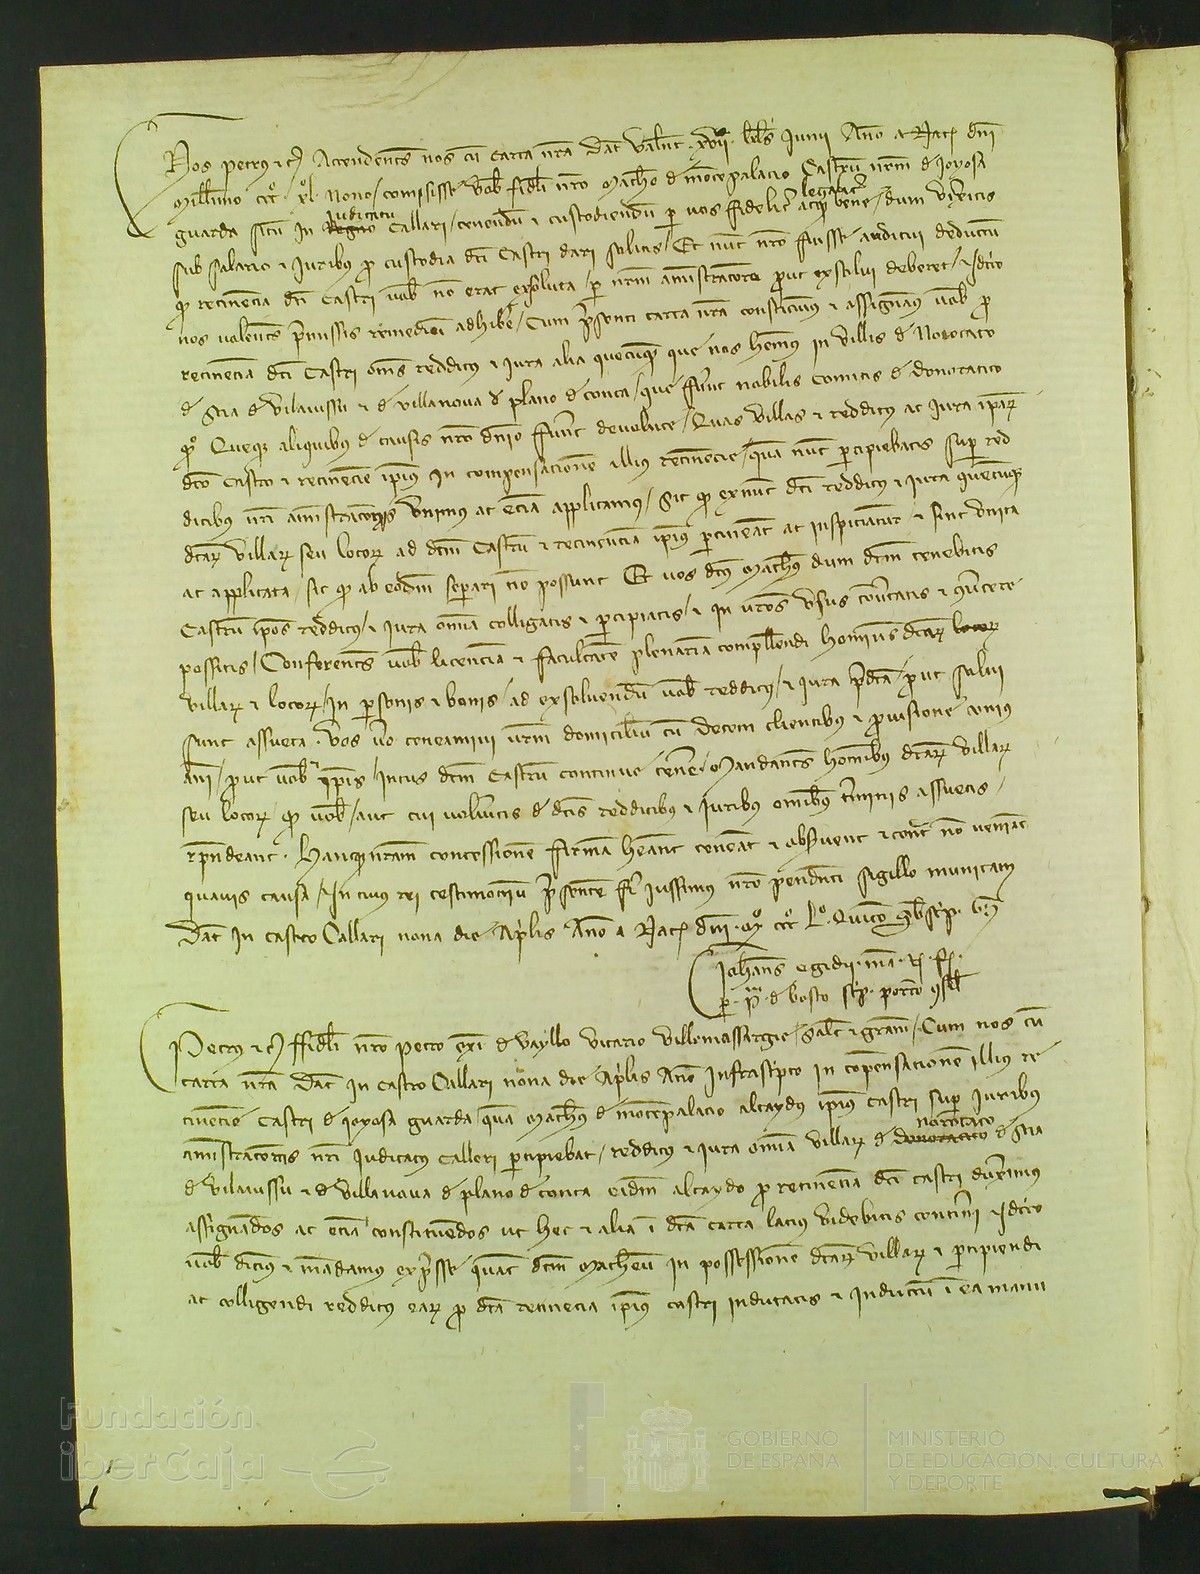 Nos Petrus etc. Attendentes nos cum carta nra dat Valent. XVII. kls Junii Anno a Nat. dni
Millimo CCC XL nono / comisisse vob fideli nro Matheo de montepalacio Castrum nrm de Joyosa
guarda situm in ~~Regno~~ Judicatu Callari / tenendum et custodiendum per vos fideliter legaliter atque bene / dum vixeritis
sub salario et Juribus pro custodia dicti Castri dari solitis / Et nunc nro fuisse auditui deductum
quod retinencia dicti Castri vob non erat exsoluta / per nrm aministratorem prout exsolui deberet / Idcirco
nos volentes premissis remedium adhibere / Cum presenti carta nra constituimus et assignamus vob pro
retinencia dicti Castri omnes redditus et Jura alia quecumque que nos hemus in villis de Norotato
de Stia de vilaiussu et de villanova de plano de conca / que fuerunt nobilis Comitis de donoratico
queque aliquibus de causis nro dnio fuerunt devolute / Quas villas et redditus ac Jura ipsarum
dicto Castro et retinencie ipsius in compensacionem illius retinencie / quam nunc percipiebatis super red
ditibus nri aministratoris unimus ac eciam applicamus / Sic quod exnunc dicti redditus et Jura quecumque
dictarum villarum seu locorum ad dictum Castrum et retinenciam ipsius pertineant ac inspiciantur et sint unita
ac applicata / sic quod ab eodem separari non possunt Et vos dictus Matheus dum dictum tenebitis
Castrum ipsos redditus / et Jura omnia colligatis et percipiatis / et in vros usus convertatis et convertere
possitis / Conferentes vob licenciam et facultatem plenariam compellendi homines dictarum ~~locorum~~
villarum et locorum / in personis et bonis / ad exsolvendum vob redditus / et Jura predicta / prout solvi
sunt assueta. Vos vero teneamini vrm domicilium cum decem clientibus et provisione unius
anni / prout vobis ipsis / intus dictum Castrum continue tenere. Mandantes hominibus dictarum villarum
seu locorum quod vob / aut cui volueritis de dictis redditibus et Juribus omnibus terminis assuetis /
respondeant. Hancque nram concessionem firmam heant teneant et observent et contra non veniant
quavis causa / In cuius rei testimonium presentem fieri iussimus nro pendenti sigillo munitam
Dat in castro Callari nona die Aprilis Anno a Nat. dni M CCC Lo. Quinto
Johannes egidii
Petrus etc. ffideli nro Petro exi de vayllo vicario villemassargie / Salt et gram / Cum nos cum
carta nra dat in castro Callari nona die Aprilis Anno infrascripto in compensacionem illius re
tinencie Castri de Joyosa guarda quam Matheus de montepalacio alcaydus ipsius castri super Juribus
aministratoris nri Judicatus Calleri percipiebat / redditus et Jura omnia villarum de ~~donoratico~~ norotato de Stia
de vilaiussu et de villanova de plano de conca eidem alcaydo pro retinencia dicti castri duximus
assignandos ac eciam constituendos ut hec et alia in dicta carta lacius videbitis contineri Idcirco
vob dicimus et mandamus expresse quatenus dictum Matheum in possessionem dictarum villarum et percipiendi
ac colligendi redditus earum pro dicta retinencia ipsius castri inducatis et inductum in ea manu
Fundación
iberCaja
GOBIERNO
DE ESPAÑA
MINISTERIO
DE EDUCACIÓN, CULTURA
Y DEPORTE